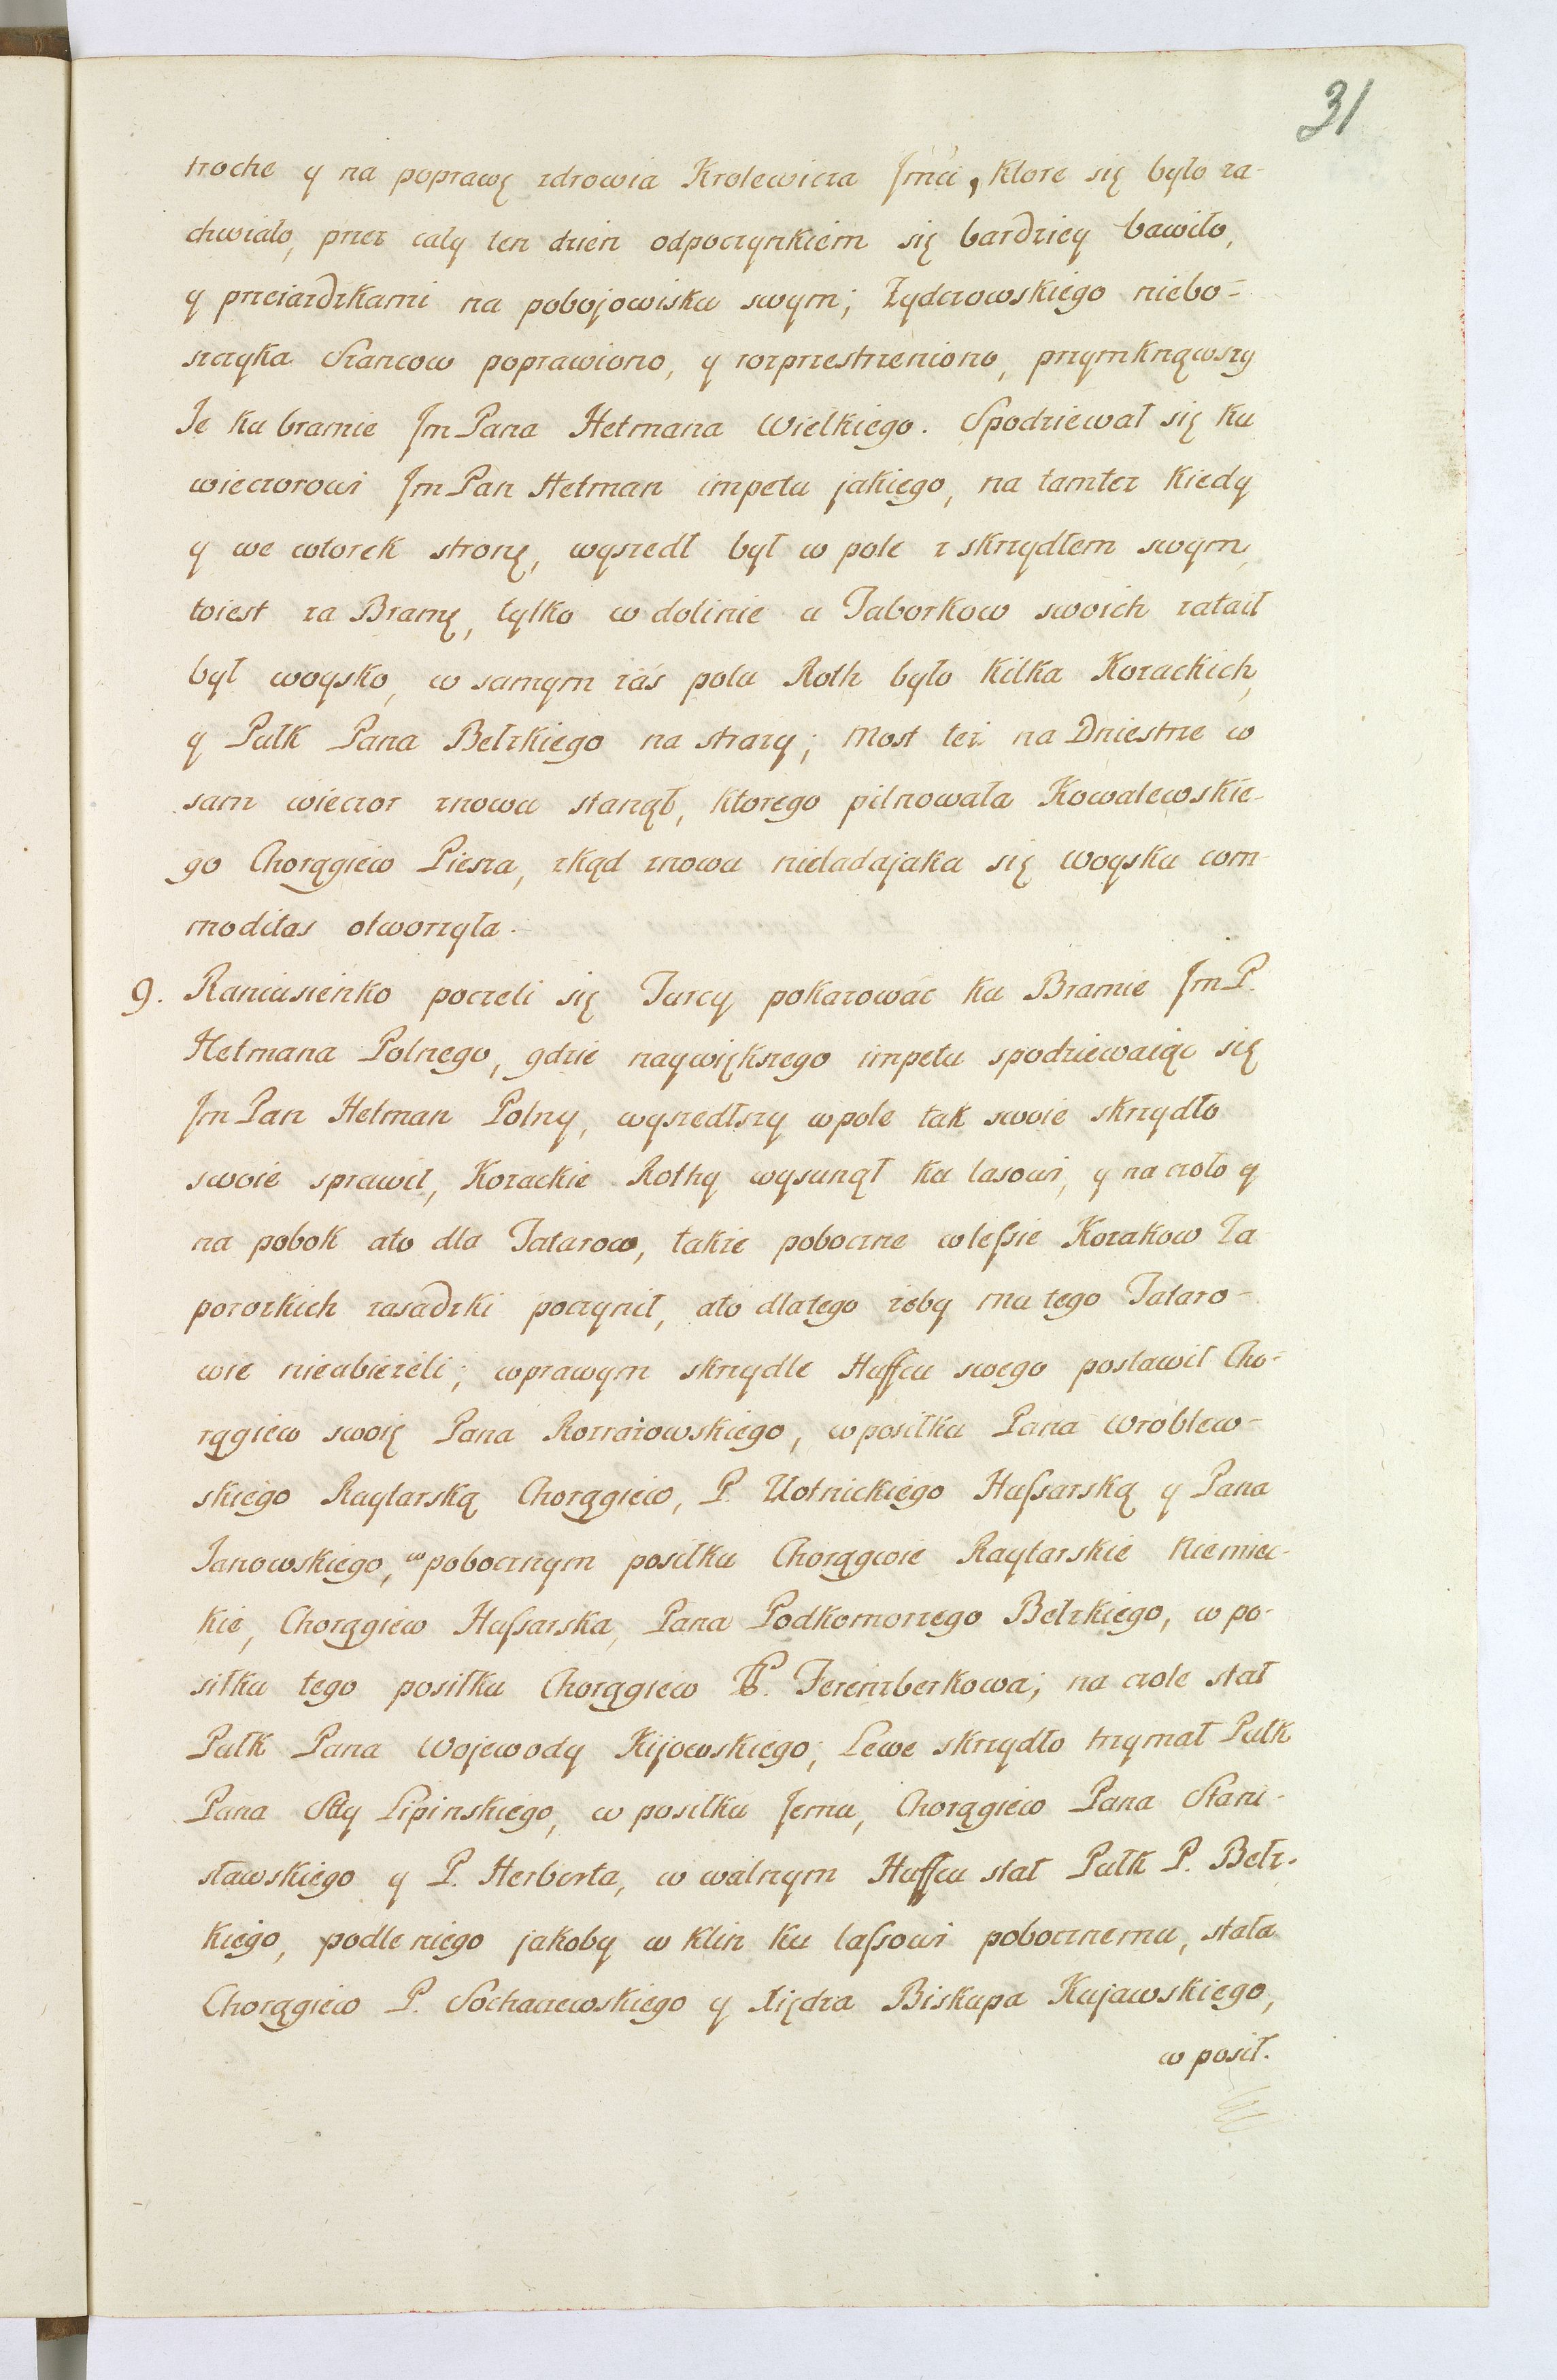 31
troche y na poprawę zdrowia Krolewicza Jmci, ktore się było za-
chwiało, przez cały ten dzien odpoczynkiem się bardziey bawiło,
y przeiazdzkami na pobojowisku swym; Zyderowskiego niebo-
szczyka Szancow poprawiono, y rozprzestrzeniono, przymknąwszy
Je ku bramie Jm Pana Hetmana Wielkiego. Spodziewał się ku
wieczorowi Jm Pan Hetman impetu jakiego, na tamtez kiedy
y we wtorek stronę, wyszedł był w pole z skrzydłem swym,
toiest za Bramę, tylko w dolinie u Taborkow swoich zataił
był woysko, w samym zaś polu Roth było kilka Kozackich,
y Pułk Pana Bełzkiego na strazy; Most też na Dniestrze w
sam wieczor znowu stanął, ktorego pilnowała Kowalewskie-
go Chorągiew Piesza, zkąd znowu nieladajaka się woysku com-
moditas otworzyła.
9. Raniusieńko poczeli się Turcy pokazowac ku Bramie Jm P.
Hetmana Polnego, gdzie naywiększego impetu spodziewaiąc się
Jm Pan Hetman Polny, wyszedłszy w pole tak swoie skrzydło
swoie sprawił, Kozackie Rothy wysunął ku lasowi, y na czoło y
na pobok ato dla Tatarow, takze poboczne w leſsie Kozakow Za
porozkich zasadzki poczynił, ato dlatego żeby mu tego Tataro-
wie nieubieżeli; w prawym skrzydle Huffcu swego postawił Cho-
rągiew swoię Pana Rozrażowskiego, w posiłku Pana Wroblew-
skiego Raytarską Chorągiew, P. Złotnickiego Huſsarską y Pana
Janowskiego, w pobocznym posiłku Chorągwie Raytarskie Niemiec-
kie, Chorągiew Huſsarska, Pana Podkomorzego Bełzkiego, w po-
siłku tego posiłku Chorągiew P. Ferenzberkowa; na czole stał
Pułk Pana Wojewody Kijowskiego; Lewe skrzydło trzymał Pułk
Pana Lipinskiego, w posiłku Jemu, Chorągiew Pana Stani-
sławskiego y P. Herburta, w walnym Huffcu stał Pułk P. Bełz-
kiego, podle niego jakoby w klin ku laſsowi pobocznemu, stała
Chorągiew P. Sochaczewskiego y Xiędza Biskupa Kujawskiego,
w posił.